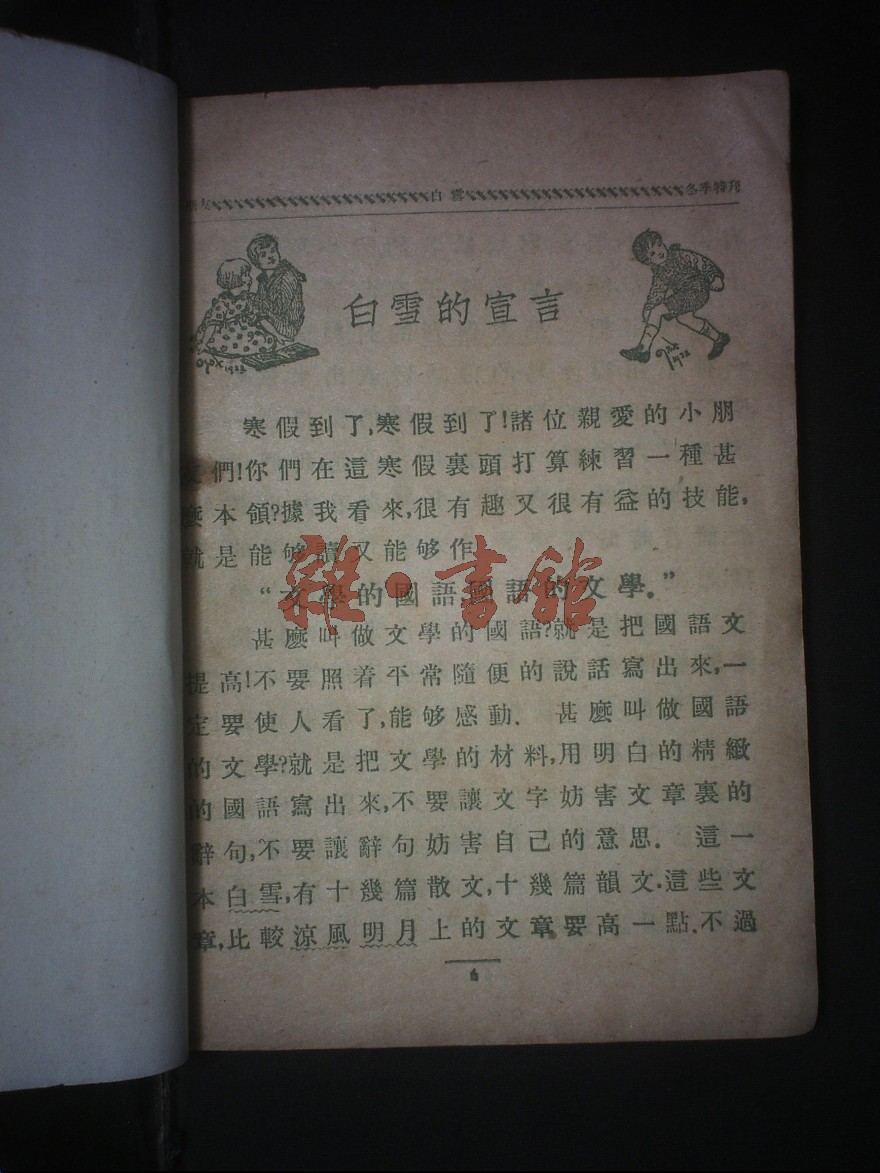 友 白雪 冬季特刊
白雪的宣言
1922
寒假到了,寒假到了!諸位親愛的小朋
們!你們在這寒假裏頭打算練習一種甚
麼本領?據我看來,很有趣又很有益的技能,
就是能够讀又能够作
“文學的國語國語的文學。”
甚麼叫做文學的國語?就是把國語文
提高!不要照着平常隨便的說話寫出來,一
定要使人看了,能够感動. 甚麼叫做國語
的文學?就是把文學的材料,用明白的精緻
的國語寫出來,不要讓文字妨害文章裏的
辭句,不要讓辭句妨害自己的意思. 這一
本白雪,有十幾篇散文,十幾篇韻文.這些文
章,比較涼風明月上的文章要高一點.不過
雜·書館